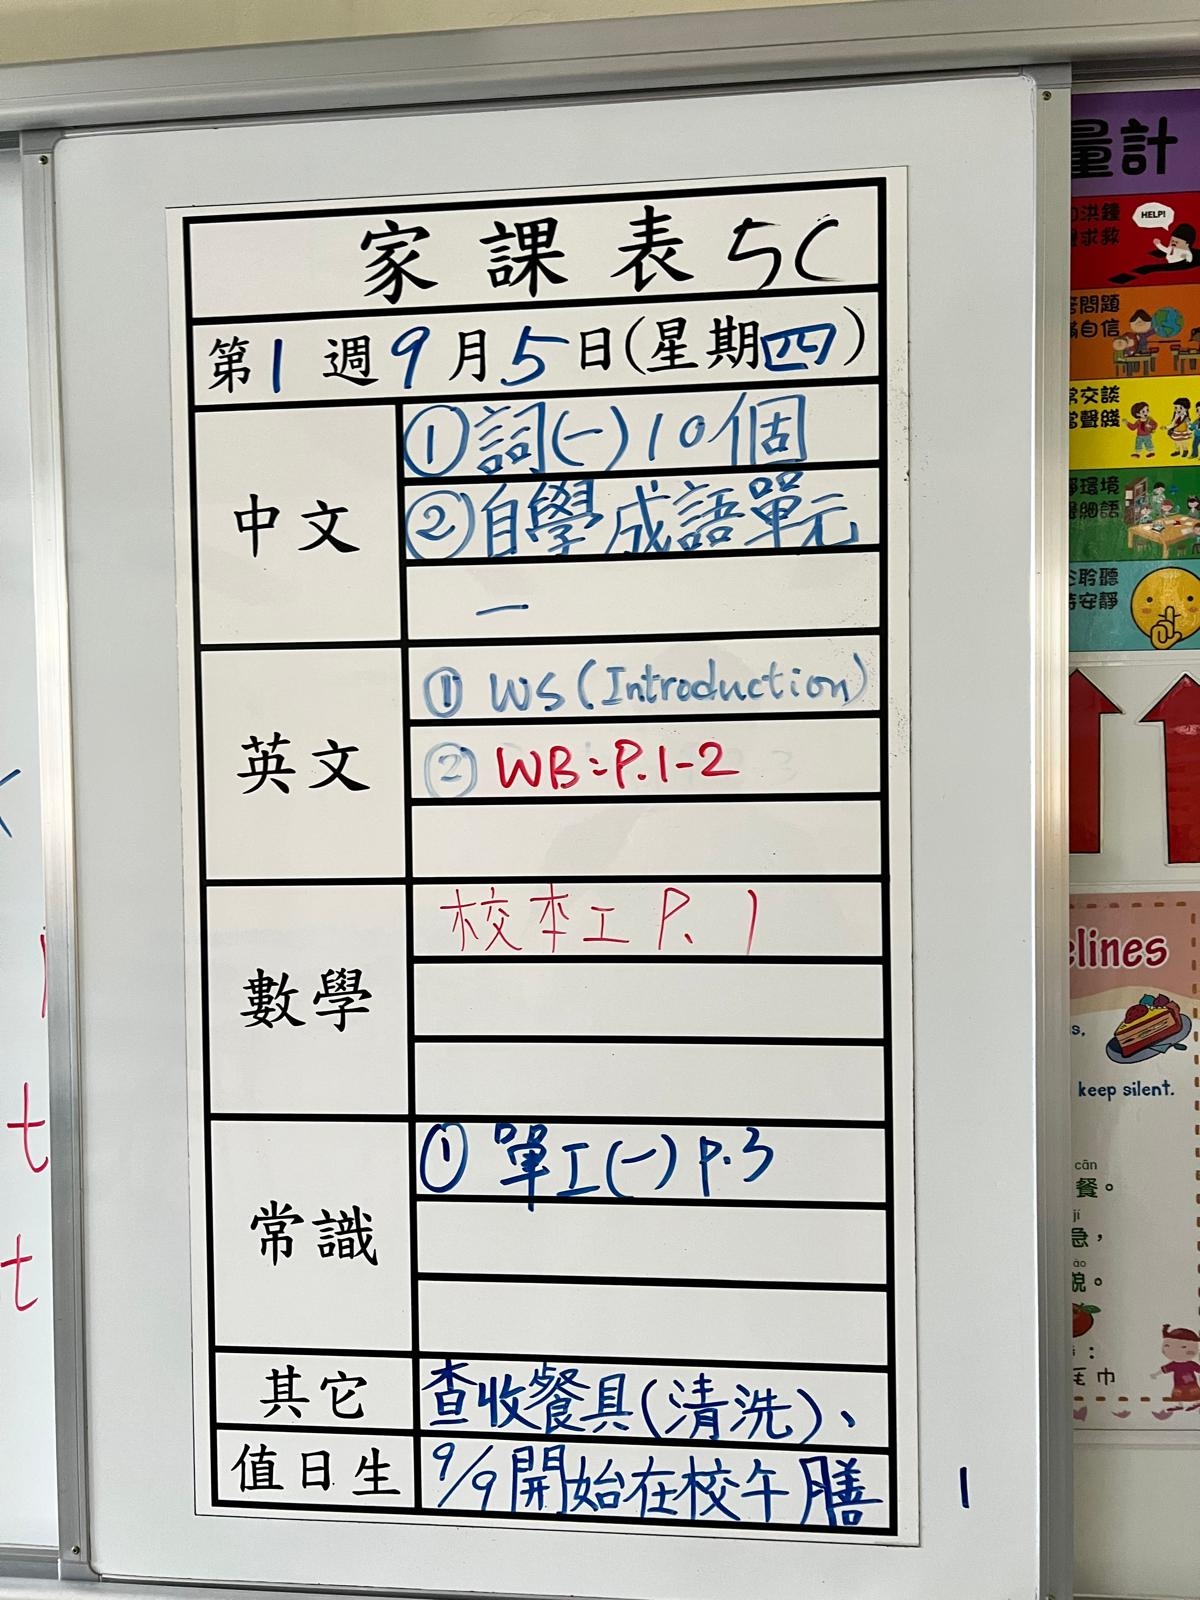 家課表 5C
第1週9月5日(星期四)
中文
①詞(一)10個
②自學成語單元
一
英文
① WS (Introduction)
② WB: P.1-2
數學
校本工 P. 1
常識
① 單工(一) P.3
其它
查收餐具(清洗)、
值日生
9/9開始在校午膳
1
量計
洪鐘
求救
HELP!
問題
自信
交談
聲綫
環境
細語
聆聽
安靜
keep silent.
cān
餐。
jí
急,
巾
t
t